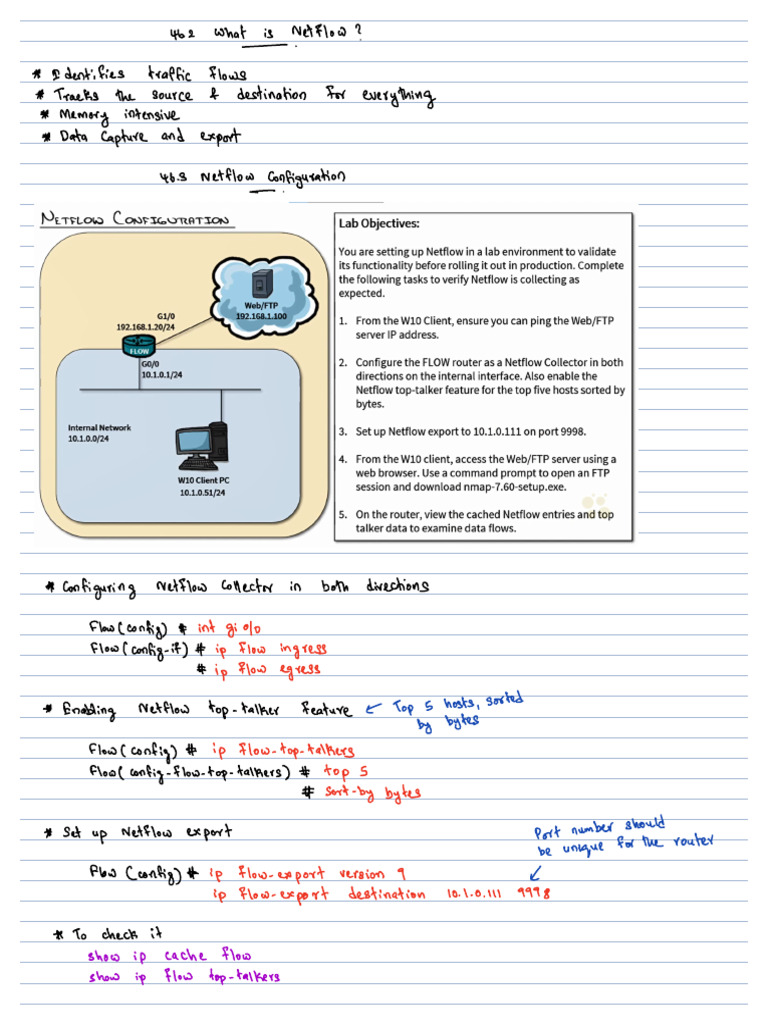 46.2 What is NetFlow?
* Identifies traffic flows
* Tracks the source & destination for everything
* Memory intensive
* Data Capture and export
46.3 Netflow Configuration
NETFLOW CONFIGURATION
Web/FTP
192.168.1.100
G1/0
192.168.1.20/24
FLOW
G0/0
10.1.0.1/24
Internal Network
10.1.0.0/24
W10 Client PC
10.1.0.51/24
Lab Objectives:
You are setting up Netflow in a lab environment to validate
its functionality before rolling it out in production. Complete
the following tasks to verify Netflow is collecting as
expected.
1. From the W10 Client, ensure you can ping the Web/FTP
server IP address.
2. Configure the FLOW router as a Netflow Collector in both
directions on the internal interface. Also enable the
Netflow top-talker feature for the top five hosts sorted by
bytes.
3. Set up Netflow export to 10.1.0.111 on port 9998.
4. From the W10 client, access the Web/FTP server using a
web browser. Use a command prompt to open an FTP
session and download nmap-7.60-setup.exe.
5. On the router, view the cached Netflow entries and top
talker data to examine data flows.
* Configuring Netflow Collector in both directions
Flow(config) # int gi 0/0
Flow(config-if) # ip flow ingress
# ip flow egress
* Enabling Netflow top-talker feature ← Top 5 hosts, sorted
by bytes
Flow(config) # ip flow-top-talkers
Flow(config-flow-top-talkers) # top 5
# sort-by bytes
* Set up Netflow export
Port number should
be unique for the router
Flow (config) # ip flow-export version 9
ip flow-export destination 10.1.0.111 9998
* To check it
show ip cache flow
show ip flow top-talkers